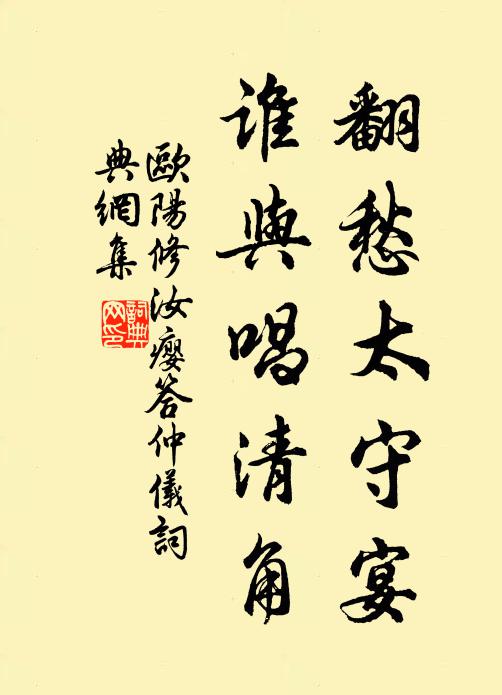 翻愁太守宴
誰與唱清角
歐陽修汝癭答仲儀詞
典網集
詞典網印